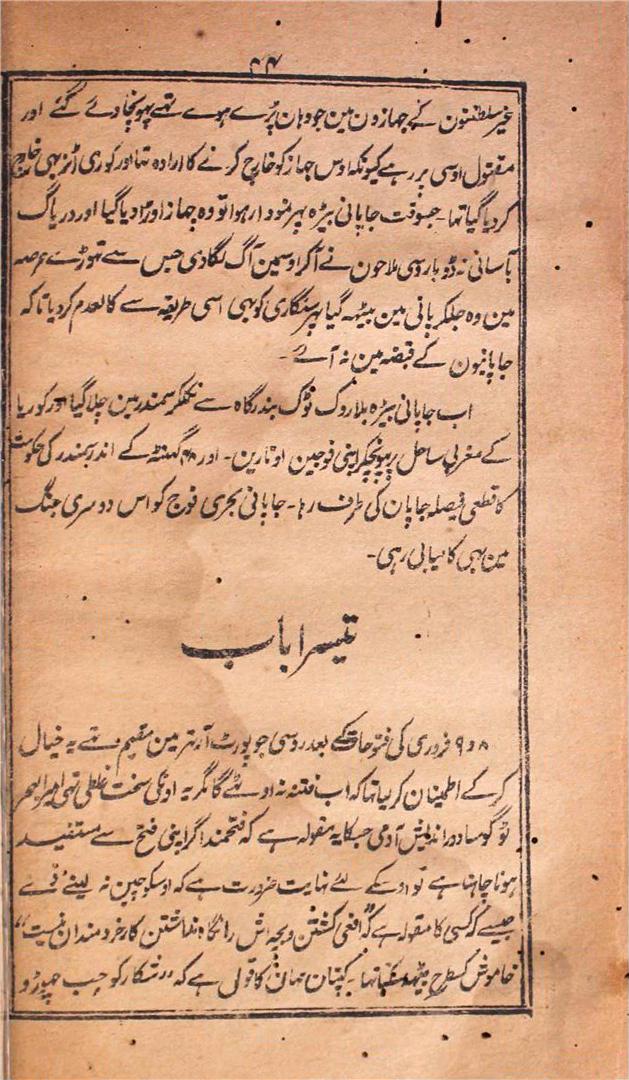 ۴۴
غیر سلطنتون کے جہازون مین جو وہان پڑے ہوے تہے پہونچا دئے گئے اور
مقتول اوسی پر رہے کیونکہ اوس جہاز کو خارج کرنے کا ارادہ تہا اور کوری اٹز بہی خارج
کردیا گیا تہا۔ جسوقت جاپانی بیڑہ پہر نمودار ہوا تو وہ جہاز اوڑا دیا گیا اور دریاگ
بآسانی نہ ڈوبا روسی ملاحون نے آکر اوسمین آگ لگادی جس سے تہوڑے عرصہ
مین وہ جلکر پانی مین بیٹہہ گیا پہر سنگاری کو بہی اسی طریقہ سے کالعدم کردیا تاکہ
جاپانیون کے قبضہ مین نہ آئے۔
اب جاپانی بیڑہ بلا روک ٹوک بندرگاہ سے نکلکر سمندر مین چلا گیا اور کوریا
کے مغربی ساحل پر پہونچکر اپنی فوجین اوتارین۔ اور ۴۸ گہنٹہ کے اندر سمندر کی حکومت
کا قطعی فیصلہ جاپان کی طرف رہا۔ جاپانی بحری فوج کو اس دوسری جنگ
مین بہی کامیابی رہی۔
تیسرا باب
۸ و ۹ فروری کی فتوحات کے بعد روسی جو پورٹ آرتہر مین مقیم تہے یہ خیال
کرکے اطمینان کرلیا تہا کہ اب فتنہ نہ اوٹہے گا مگر یہ اونکی سخت غلطی تہی امیر البحر
ٹوگو سا دور اندیش آدمی جسکا یہ مقولہ ہے کہ فتحمند اگر اپنی فتح سے مستفید
ہونا چاہتا ہے تو اوسکے لئے نہایت ضرورت ہے کہ اوسکو چین نہ لینے دے
جیسے کہ کسی کا مقولہ ہے کہ "افعی کشتن و بچہ اش را نگاہ داشتن کار خردمندان نیست"
خاموش کسطرح بیٹہہ سکتا تہا۔ کپتان مہان کا قول ہے کہ "شکار کو جب چہوڑو